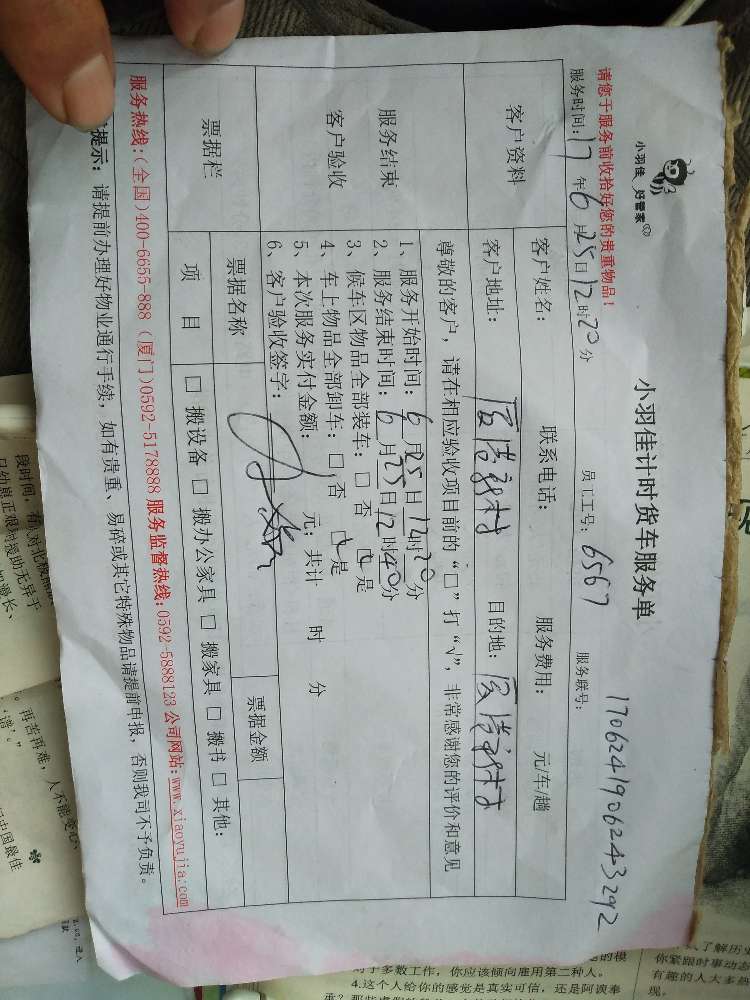 小羽佳 好管家
小羽佳计时货车服务单
1706241906243292
请您于服务前收拾好您的贵重物品！
服务时间：17 年 6 月 25 日 12 时 20 分 员工工号：6567 服务联号：
客户资料 客户姓名： 联系电话： 服务费用： 元/车/趟
客户地址： 目的地：
尊敬的客户，请在相应验收项目前的“□”打“√”，非常感谢您的评价和意见
服务结束
客户验收
1、服务开始时间：6 月 25 日 12 时 20 分
2、服务结束时间：6 月 25 日 12 时 40 分
3、候车区物品全部装车：□ 否 ☑ 是
4、车上物品全部卸车：□ 否 ☑ 是
5、本次服务实付金额： 元；共计 时 分
6、客户验收签字：
票据栏 票据名称 票据金额
项 目 □ 搬设备 □ 搬办公家具 □ 搬家具 □ 搬书 □ 其他：
服务热线：（全国）400-6655-888（厦门）0592-5178888 服务监督热线：0592-5888123 公司网站：www.xiaoyujia.com
提示： 请提前办理好物业通行手续，如有贵重、易碎或其它特殊物品请提前申报，否则我司不予负责。
于多数工作，你应该倾向雇用第二种人。
4.这个人给你的感觉是真实可信，还是阿谀奉
了解历史
你紧跟时事动态
有趣的人大多热
现。
再苦再难，人不能变心、